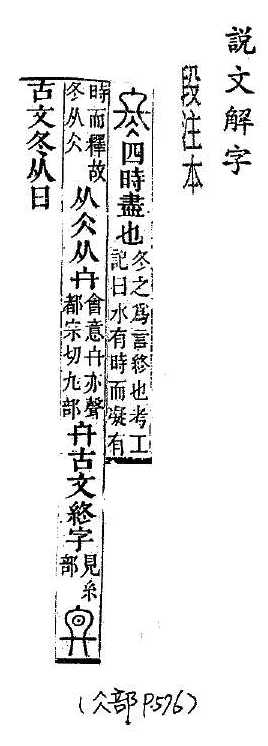 説文解字
段注本
四時盡也冬之爲言終也考工記曰水有時而凝有
時而釋故冬从仌从仌从𠔾會意𠔾亦聲都宗切九部𠔾古文終字見糸部
古文冬从日
(仌部P576)